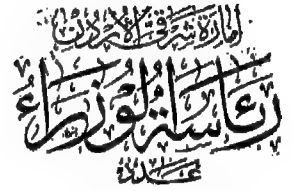 امارة شرقي الاردن
رئاسة الوزراء
عدد